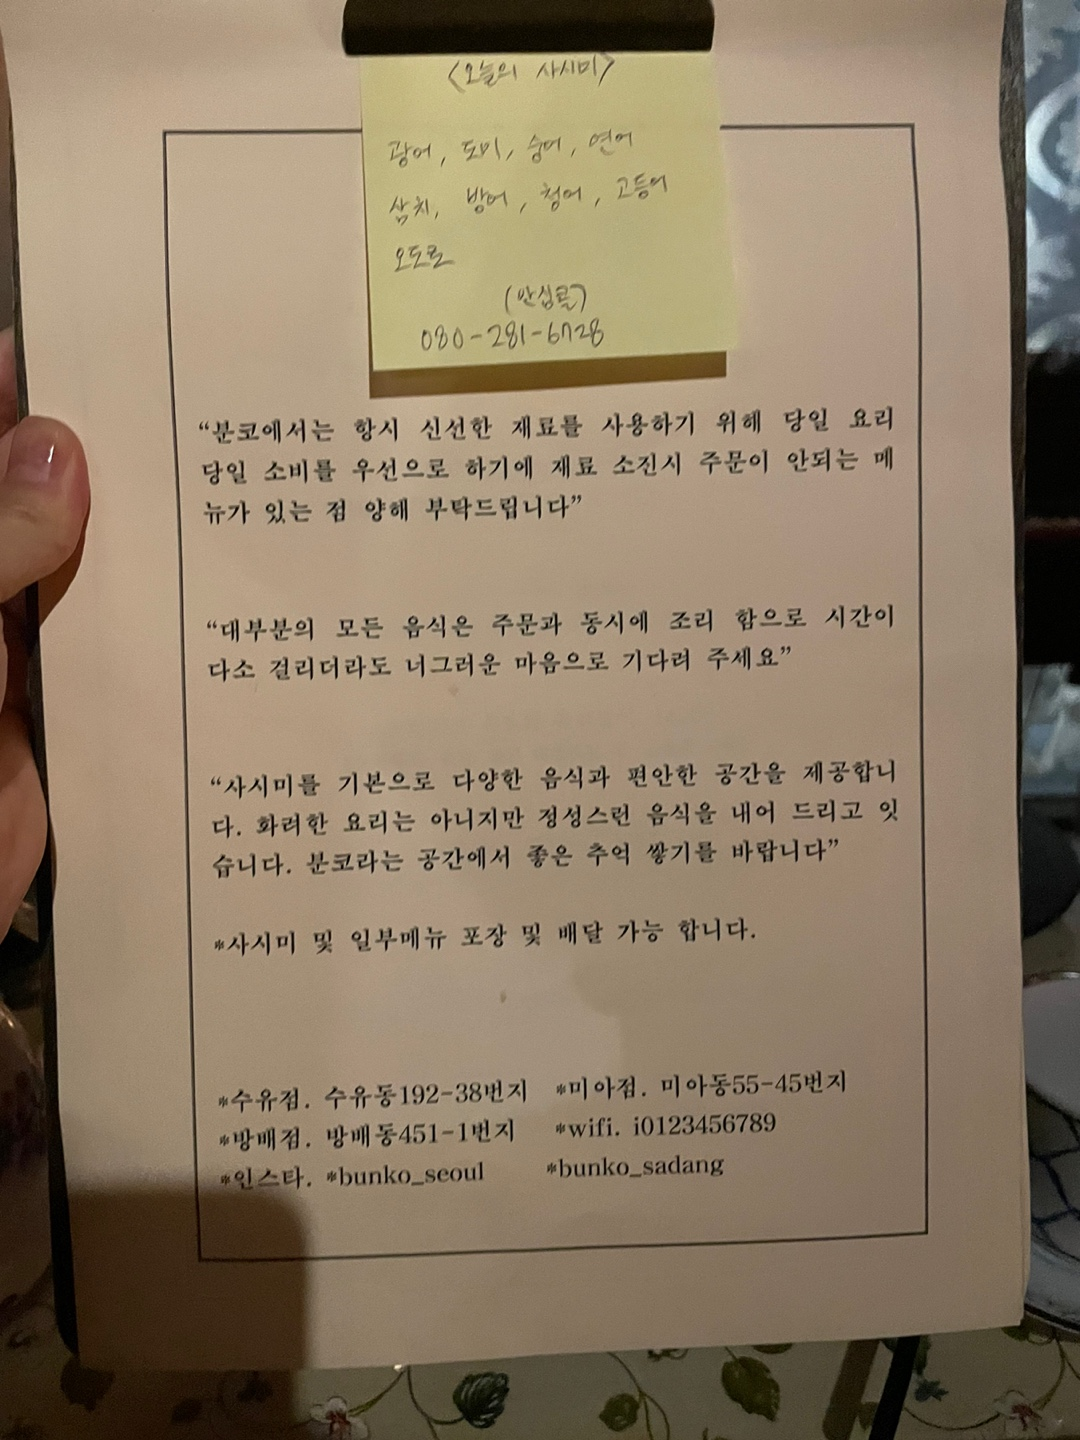 <오늘의 사시미>
광어, 도미, 숭어, 연어
삼치, 방어, 청어, 고등어
오도로
(안심콜)
080-281-6728
“분코에서는 항시 신선한 재료를 사용하기 위해 당일 요리
당일 소비를 우선으로 하기에 재료 소진시 주문이 안되는 메
뉴가 있는 점 양해 부탁드립니다”
“대부분의 모든 음식은 주문과 동시에 조리 함으로 시간이
다소 걸리더라도 너그러운 마음으로 기다려 주세요”
“사시미를 기본으로 다양한 음식과 편안한 공간을 제공합니
다. 화려한 요리는 아니지만 정성스런 음식을 내어 드리고 잇
습니다. 분코라는 공간에서 좋은 추억 쌓기를 바랍니다”
*사시미 및 일부메뉴 포장 및 배달 가능 합니다.
*수유점. 수유동192-38번지 *미아점. 미아동55-45번지
*방배점. 방배동451-1번지 *wifi. i0123456789
*인스타. *bunko_seoul *bunko_sadang